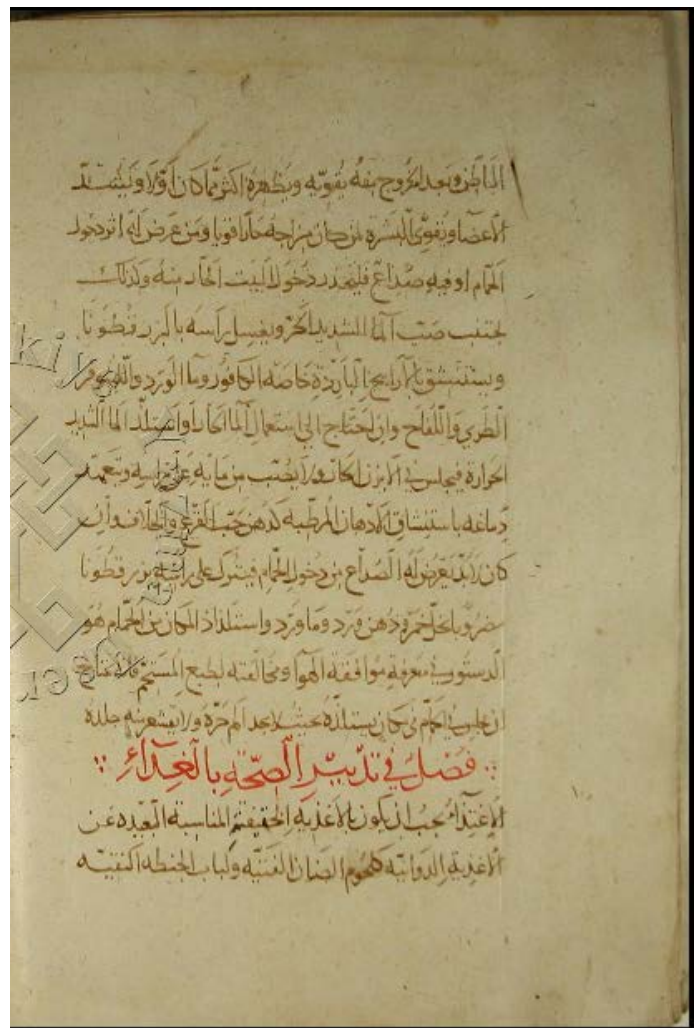 الباطن وبعد الخروج منه يقويه ويظهره اكثر مما كان اولا ويشتد
الاعضا ويقوى البشرة لمن كان مزاجه حارا قويا ومن عرض له اثر دخول
الحمام او فيه صداع فليحذر دخول البيت الحار منه وكذلك
يجتنب صب الما الشديد الحر ويغسل راسه بالبزرقطونا
ويستنشق بالاراييح الباردة خاصة الكافور وما الورد واللينوفر
الطري واللفاح وان احتاج الى استعمال الما الحار او استلذ الما الشديد
الحرارة فيجلس في الابزن الحار ولا يصب من مايه على راسه ويتعمد
دماغه باستنشاق الادهان المرطبة كدهن حب القرع والخلاف وان
كان لابد يعرض له الصداع من دخول الحمام فيترك على راسه بزرقطونا
مضروبا بخل خمر ودهن ورد وما ورد واستلذاذ المكان من الحمام هو
الدستور في معرفة موافقة الهوا ومخالفته لطبع المستحم فانه يحتاج
ان يجلس في الحمام في مكان يستلذه بحيث لا يجد الم حره ولا يقشعر منه جلده
فصل في تدبير الصحة بالغذاء
الاغتذاء يجب ان يكون بالاغذية الحقيقية المناسبة البعيده عن
الاغذية الدوائية كلحوم الضان الفتية ولباب الحنطة النقية